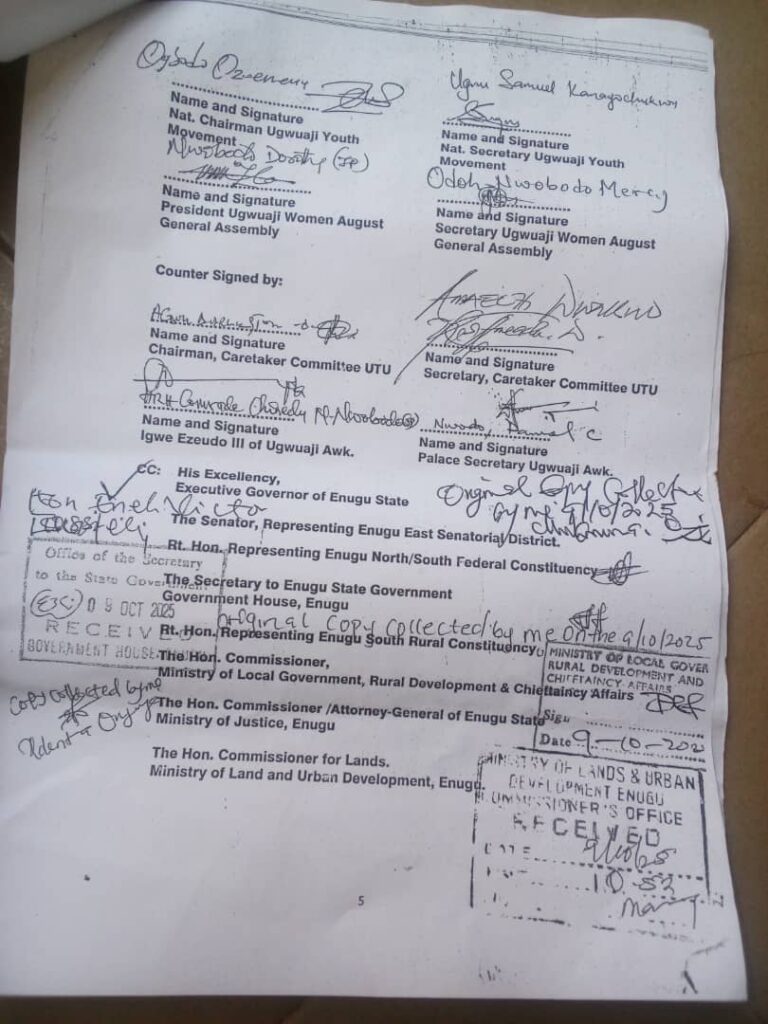 Ogbodo Ozoemena
Name and Signature
Nat. Chairman Ugwuaji Youth
Movement
Ugwu Samuel Kanayochukwu
Name and Signature
Nat. Secretary Ugwuaji Youth
Movement
Nwobodo Dorothy (JP)
Name and Signature
President Ugwuaji Women August
General Assembly
Odoh-Nwobodo Mercy
Name and Signature
Secretary Ugwuaji Women August
General Assembly
Counter Signed by:
Name and Signature
Chairman, Caretaker Committee UTU
Name and Signature
Secretary, Caretaker Committee UTU
Name and Signature
Igwe Ezeudo III of Ugwuaji Awk.
Nwodo, Daniel C
Name and Signature
Palace Secretary Ugwuaji Awk.
CC: His Excellency,
Executive Governor of Enugu State
Original Copy Collected
by me 9/10/2025
The Senator, Representing Enugu East Senatorial District.
Rt. Hon. Representing Enugu North/South Federal Constituency
Office of the Secretary
to the State Government
09 OCT 2025
RECEIV
GOVERNMENT HOUSE
The Secretary to Enugu State Government
Government House, Enugu
Original Copy collected by me on the 9/10/2025
Rt. Hon. Representing Enugu South Rural Constituency
The Hon. Commissioner,
Ministry of Local Government, Rural Development & Chieftaincy Affairs
MINISTRY OF LOCAL GOVER
RURAL DEVELOPMENT AND
CHIEFTAINCY AFFAIRS
Sign
Date 9-10-202
Copy collected by me
The Hon. Commissioner /Attorney-General of Enugu State
Ministry of Justice, Enugu
The Hon. Commissioner for Lands.
Ministry of Land and Urban Development, Enugu.
MINISTRY OF LANDS & URBAN
DEVELOPMENT ENUGU
COMMISSIONER'S OFFICE
RECEIVED
DATE 9/10/25
10.52
5